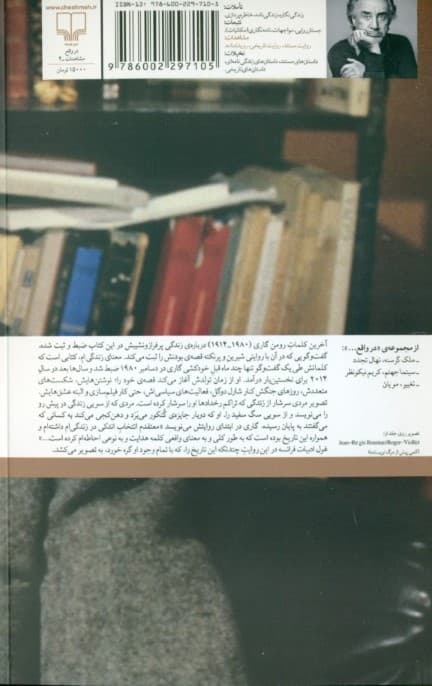 www.cheshmeh.ir
در واقع
مشاهدات ـ ۹
۱۵۰۰۰ تومان
ISBN-13: 978-600-229-710-5
9 786002 297105
تأملات:
زندگی‌نگاره، زندگی‌نامه، خاطره‌پردازی.
تتبعات:
جستارروایی، مواجهات، نامه‌نگاری (مکاتبات).
مشاهدات:
روایت مستند، روایت تاریخی، روزنامه‌نامه.
تخیلات:
داستان‌های مستند، داستان‌های زندگی‌نامه‌ای،
داستان‌های تاریخی.
آخرین کلماتِ رومن گاری (۱۹۸۰ـ۱۹۱۴) درباره‌ی زندگی پرفرازونشیبش در این کتاب ضبط و ثبت شده.
گفت‌وگویی که در آن با روایتی شیرین و پرنکته قصه‌ی بودنش را ثبت می‌کند. معنای زندگی‌ام، کتابی است که
کلماتش طی یک گفت‌وگو تنها چند ماه قبلِ خودکشی گاری در دسامبر ۱۹۸۰ ضبط شد و سال‌ها بعد در سالِ
۲۰۱۴ برای نخستین‌بار درآمد. او از زمانِ تولدش آغاز می‌کند قصه‌ی خود را؛ نوشتن‌هایش، شکست‌های
متعددش، روزهای جنگش کنار شارل دوگل، فعالیت‌های سیاسی‌اش، حتی کار فیلم‌سازی و البته عشق‌هایش.
تصویرِ مردی سرشار از زندگی که تراکم رخدادها او را سرشار کرده است. مردی که از سویی زندگی در پیش رو
را می‌نویسد و از سویی سگ سفید را. او که دوبار جایزه‌ی گنکور می‌بَرَد و دهن‌کجی می‌کند به کسانی که
می‌گفتند به پایان رسیده. گاری در ابتدای روایتش می‌نویسد «معتقدم انتخابِ اندکی در زندگی‌ام داشته‌ام و
همواره این تاریخ بوده است که به طور کلی و به معنای واقعی کلمه هدایت و به نوعی احاطه‌ام کرده است...»
غول ادبیات فرانسه در این روایتِ چندتکه این تاریخ را، که با تمام وجود او گره خورد، به تصویر می‌کشد.
از مجموعه‌ی «در واقع...»:
ـ ملک گرسنه، نهال تجدد
ـ سینما جهنم، کریم نیکونظر
ـ تغییر، مو یان
تصویر روی جلد از:
Jean-Régis Roustan/Roger-Viollet